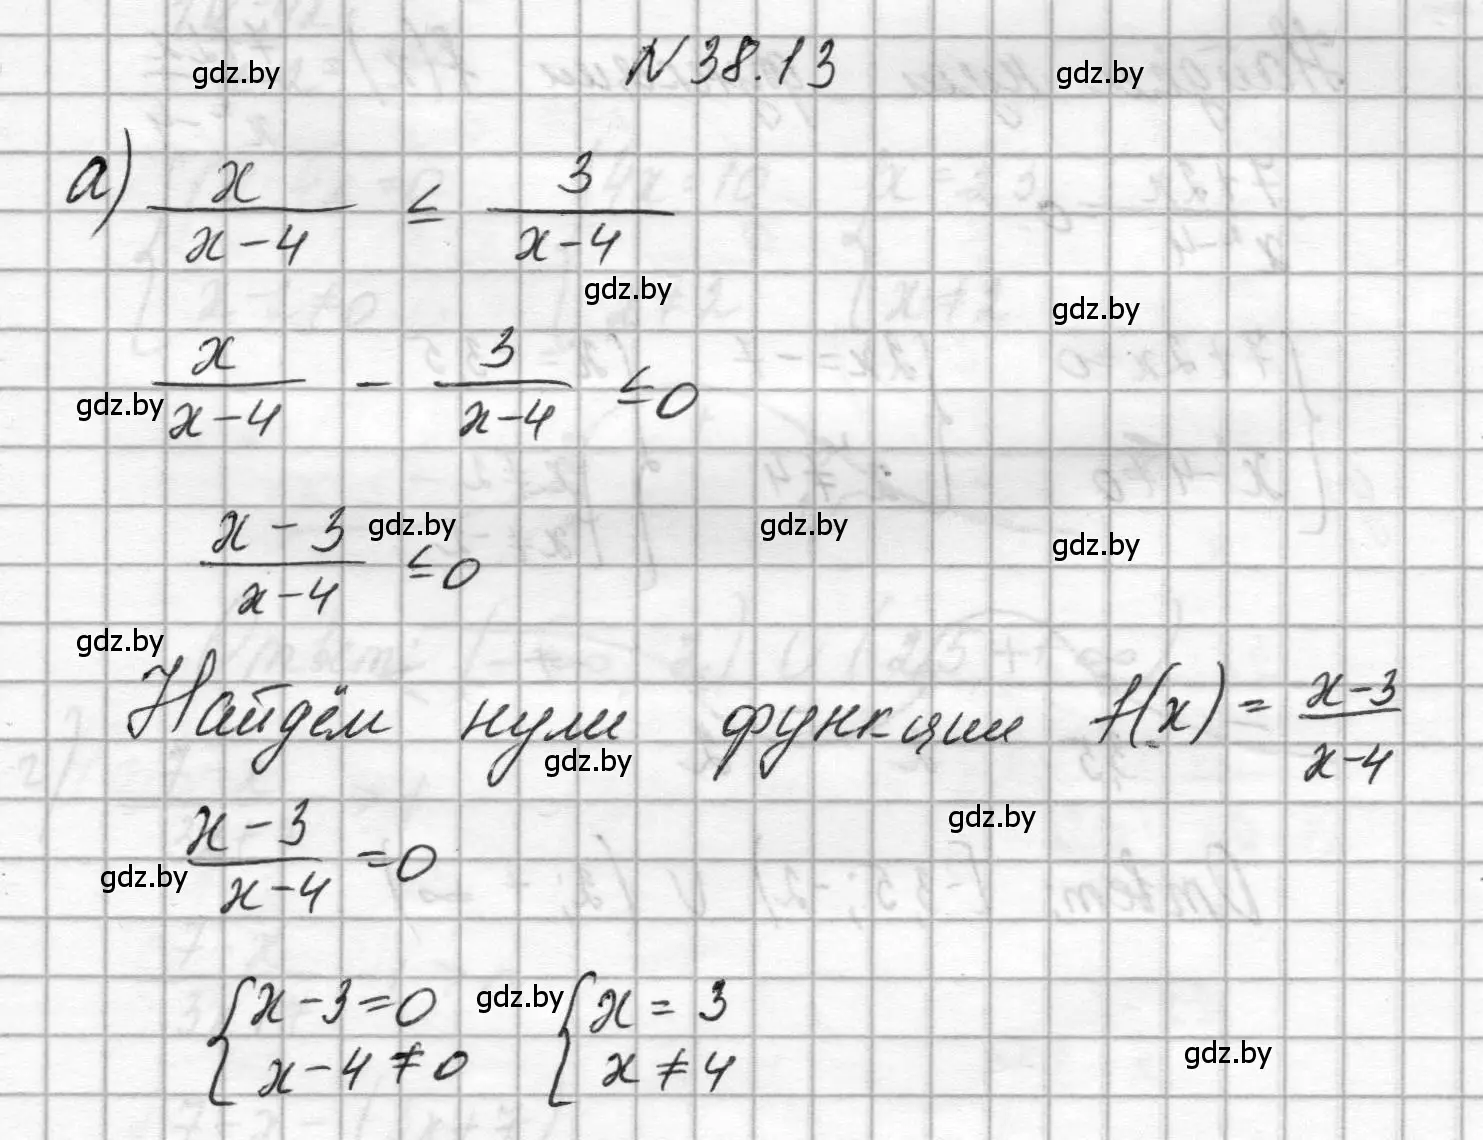 N 38.13
gdz.by gdz.by
а) x/(x-4) ≤ 3/(x-4)
gdz.by gdz.by
x/(x-4) - 3/(x-4) ≤ 0
gdz.by
(x-3)/(x-4) ≤ 0
gdz.by gdz.by gdz.by
gdz.by
Найдём нули функции f(x) = (x-3)/(x-4)
gdz.by gdz.by
(x-3)/(x-4) = 0
gdz.by
{x-3=0 gdz.by {x = 3
x-4≠0 x≠4
gdz.by